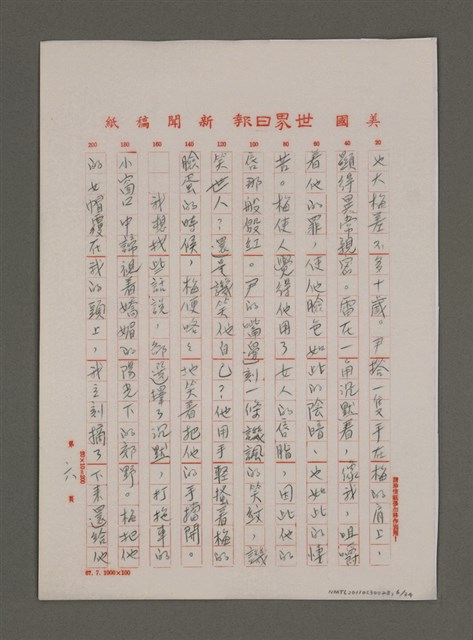 美國世界日報新聞稿紙
20
40
60
80
100
120
140
160
180
200
也大梅差不多十歲。尹搭一隻手在梅的肩上,
顯得異常親密。雷在一角沉默着,像我,咀嚼
着他的罪,使他臉色如此的陰暗,也如此的悽
苦。梅使人覺得他用了女人的唇脂,因此他的
唇那般殷紅。尹的嘴邊刻一條譏諷的笑紋,譏
笑世人?還是譏笑他自己?他用手輕搭着梅的
臉蛋的時候,梅便咯咯地笑着把他的手擋開。
我想找些話說,却選擇了沉默,打拖車的
小窗口中諦視着嬌媚的陽光下的郊野。梅把他
的女帽覆在我的頭上,我立刻摘了下來還給他
第 六 頁
20×10=200
67.7.1000×100